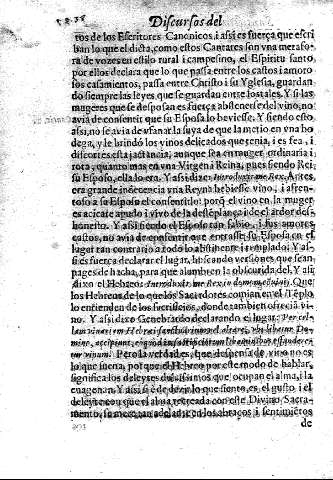 Discursos del
tos de los Escritores Canonicos, i assi es fuerça que escri
ban lo que el dicta, como estos Cantares son vna metafo
ra de vozes en estilo rural i campesino, el Espiritu santo,
por ellos declara que lo que passa entre los castos i amoro
sos casamientos, passa entre Christo i su Yglesia, guardan
do siempre las leyes que se guardan entre los tales. Y si las
mugeres que se desposan es fuerça abstenerse del vino, no
avia de consentir que su Esposa lo beviesse. Y siendo esto
assi, no se avia de vfanar la suya de que la metio en vna bo
dega, y le brindó los vinos delicados que tenia, i es fea, i
descortes esta jactancia, aunque sea en muger ordinaria i
rota, quanto mas en vna Virgen i Reina, pues siendo Rei
su Esposo, ella lo era. Y assi dize: Introduxit me Rex. Antes
era grande indecencia vna Reyna bebiesse vino, i afren-
toso a su Esposo el consentirlo: porq el vino en la muger
es acicate agudo i vivo de la destemplança i de el ardor des-
honesto. Y assi siendo el Esposo tan sabio, i sus amores
castos, no avia de consentir que entrasse su Esposa en el
lugar tan contrario a todo lo abstinente i templado: Y as-
si es fuerça declarar el lugar, buscando versiones que sean
pages de hacha, para que alumbren la obscuridad del. Y assi
dixo el Hebreo: Introduxit me Rex in domum vini. Que
los Hebreos de lo que los Sacerdotes comian en el Téplo
lo entienden de los sacrificios, donde tambien ofrecia vi-
no. Y assi dixo Genebrardo declarando el lugar: Per
vinum
Pero la verdad es, que despensa de vino no es
lo que suena, porque el Hebreo por este modo de hablar,
significa los deleytes dulcissimos que ocupan el alma, i la
enagenan. Y assi el decir lo que siente, es el gusto i el
deleyte con que el alma recreada con este Divino Sacra-
mento, los abraços i sentimiétos
de